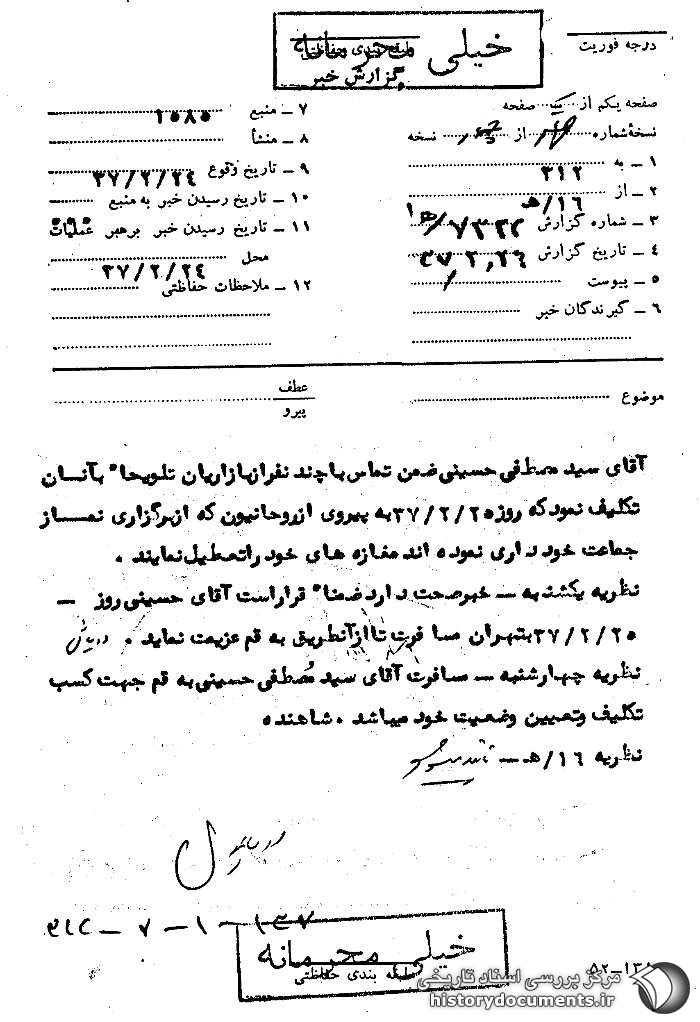 خیلی محرمانه
طبقه بندی حفاظتی
گزارش خبر
درجه فوریت
صفحه یکم از یک صفحه
نسخهٔ شماره از نسخه
۱ – به ۳۱۲
۲ – از ۱۶/هـ
۳ – شماره گزارش ۷۳۲۲/هـ۱
۴ – تاریخ گزارش ۳۷/۲/۲۶
۵ – پیوست
۶ – گیرندگان خبر
۷ – منبع ۱۰۸۵
۸ – منشأ
۹ – تاریخ وقوع ۳۷/۲/۲۴
۱۰ – تاریخ رسیدن خبر به منبع
۱۱ – تاریخ رسیدن خبر برهبر عملیات
محل ۳۷/۲/۲۴
۱۲ – ملاحظات حفاظتی
موضوع
عطف
پیرو
آقای سید مصطفی حسینی ضمن تماس با چند نفر از بازاریان تلویحا" بآنسان
تکلیف نمود که روز ۳۷/۲/۲۵ به پیروی از روحانیون که از برگزاری نمــاز
جماعت خود داری نموده اند مغازه های خود را تعطیل نمایند .
نظریه یکشنبه – خبر صحت دارد ضمنا" قرار است آقای حسینی روز –
۳۷/۲/۲۵ بتهران مسافرت تا از آنطریق به قم عزیمت نماید .
نظریه چهارشنبه – مسافرت آقای سید مصطفی حسینی به قم جهت کسب
تکلیف وتعیین وضعیت خود میباشد . شاهنده
نظریه ۱۶/هـ –
۳۱۲ – ۷ – ۱ – ۱۳۷
خیلی محرمانه
طبقه بندی حفاظتی
مرکز بررسی اسناد تاریخی
historydocuments.ir